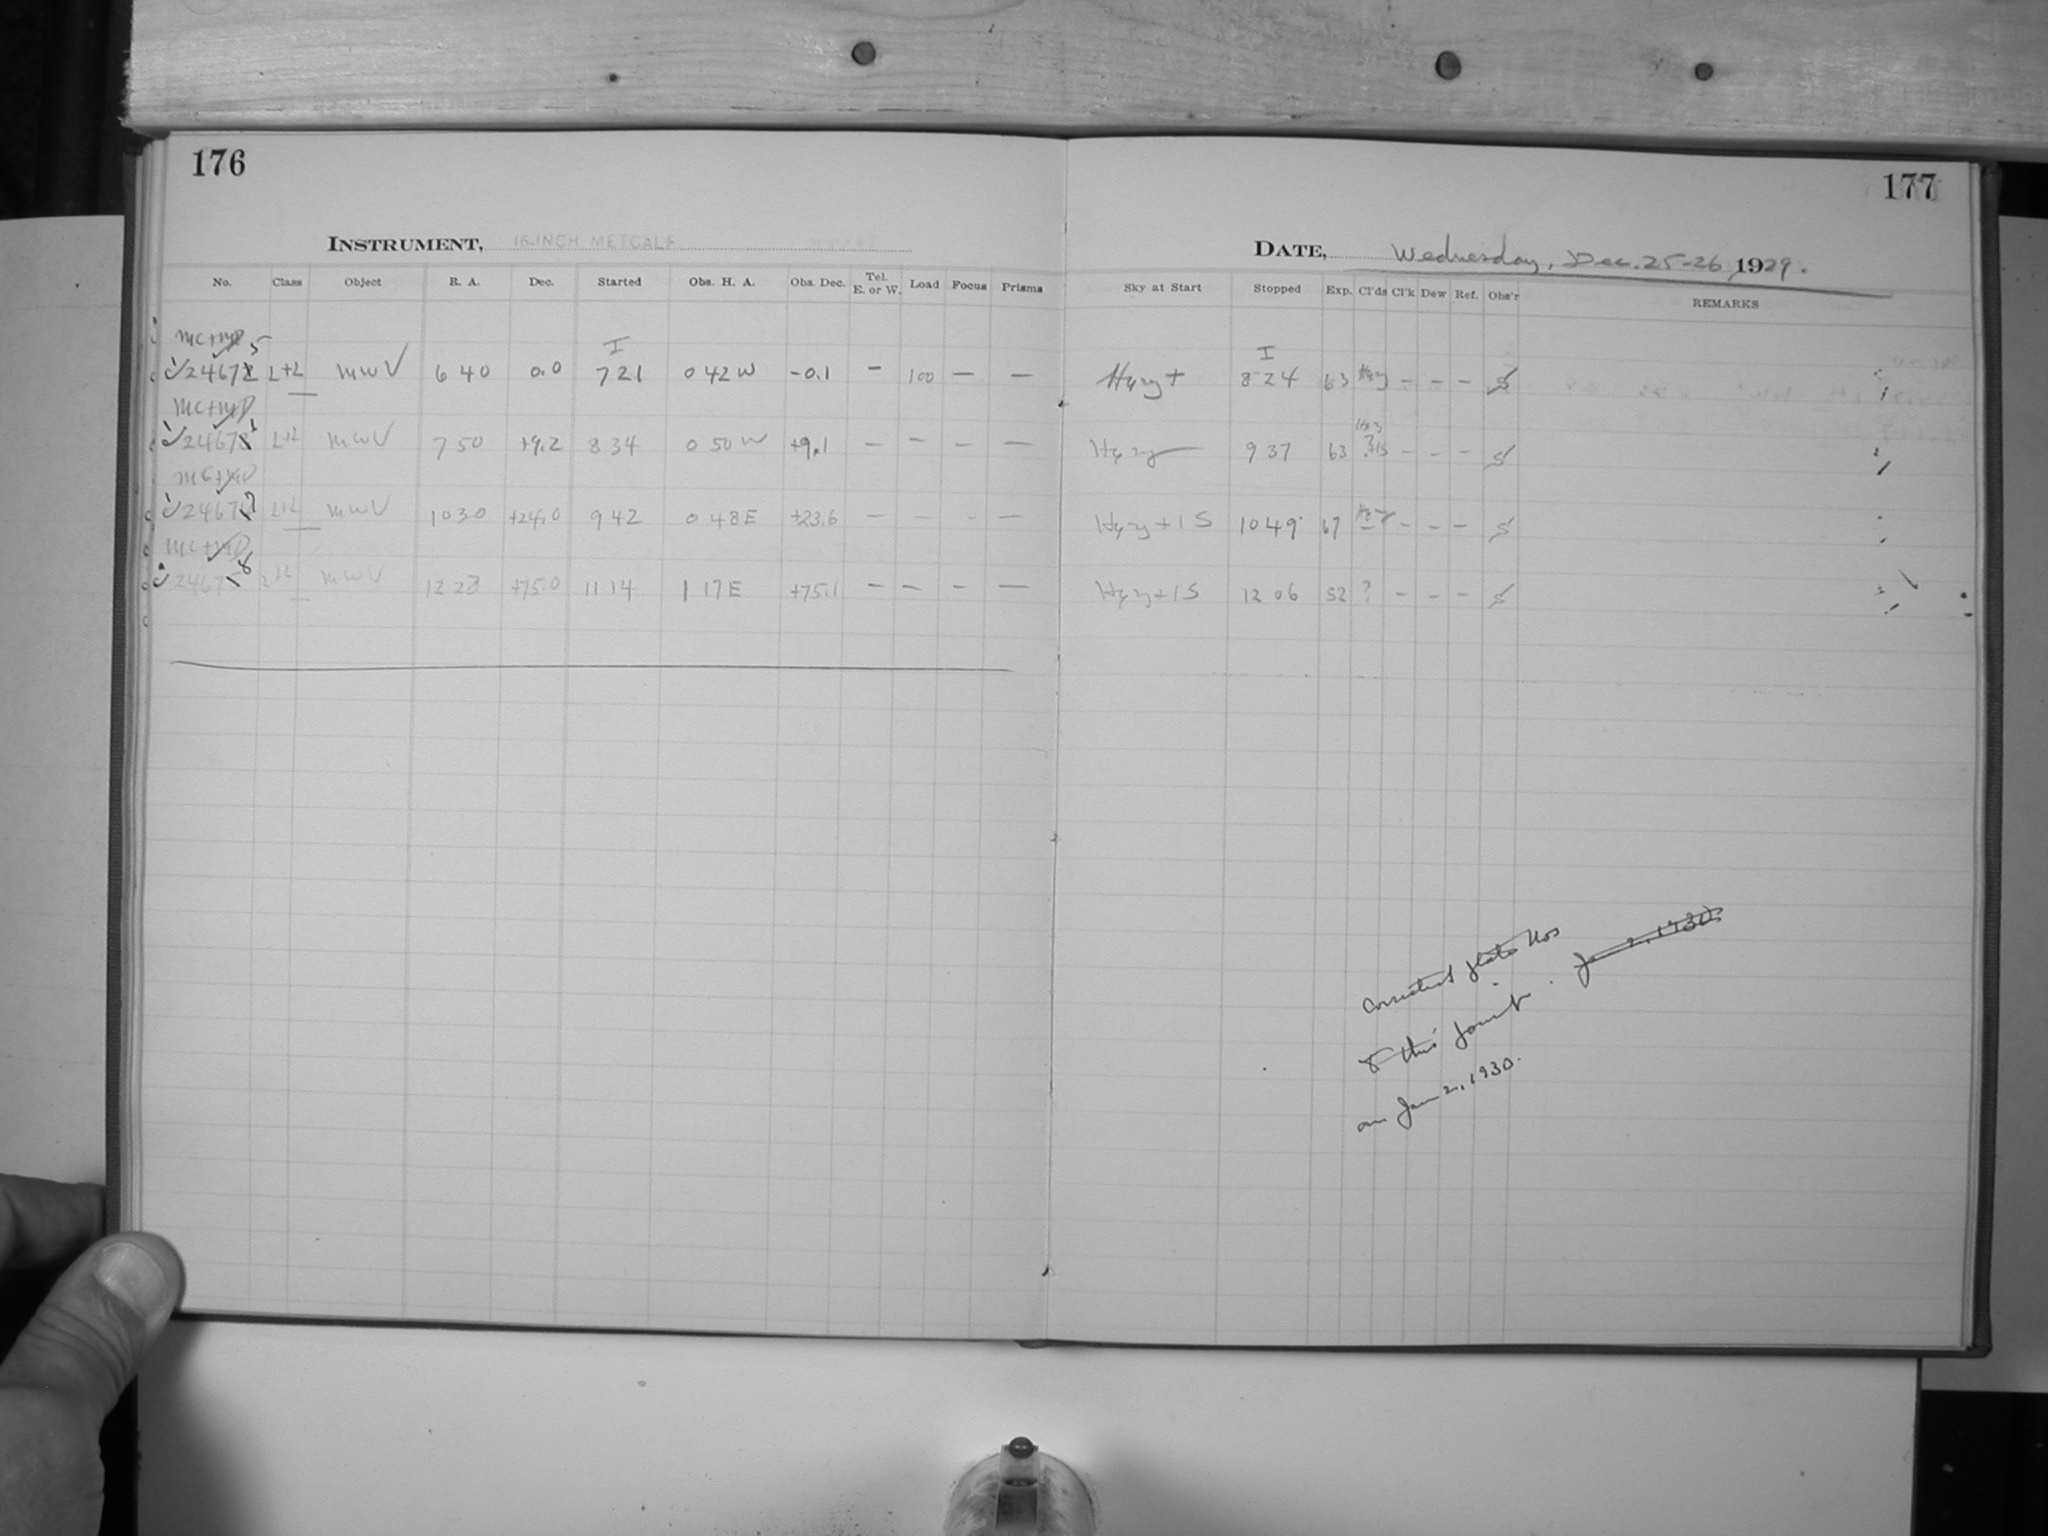 176
177
INSTRUMENT, 16-INCH METCALF
DATE, Wednesday, Dec. 25-26, 1929.
No. Class Object R. A. Dec. Started Obs. H. A. Obs. Dec. Tel. E. or W. Load Focus Prisms
Sky at Start Stopped Exp. Cl'ds Cl'k Dew Ref. Obs'r REMARKS
MC+
I I
2467 5 L+L MWV 6 40 0.0 7 21 0 42 W -0.1 — 100 — — Hazy + 8 24 63 Hazy – – – S
MC+
2467 L+L MWV 7 50 +9.2 8 34 0 50 W +9.1 — — — — Hazy 9 37 63 – – – S
MC+
2467 7 L+L MWV 10 30 +24.0 9 42 0 48 E +23.6 — — - — Hazy + 1 S 10 49 67 Hazy – – – S
MC+
2467 8 L+L MWV 12 23 +75.0 11 14 1 17 E +75.1 — — – — Hazy + 1 S 12 06 52 ? – – – S
Corrected plate Nos
Jan 2, 1930
this
on Jan 2, 1930.